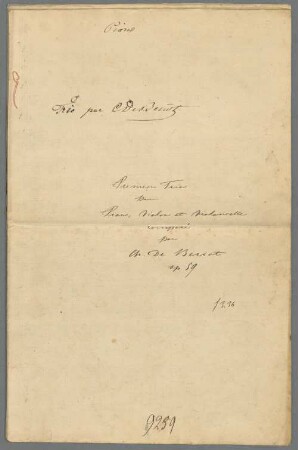 Piano
Trio par C De Beriot
Premier Trio
Piano, Violon et Violoncelle
composé
par
Ch. De Beriot
op. 59
9259